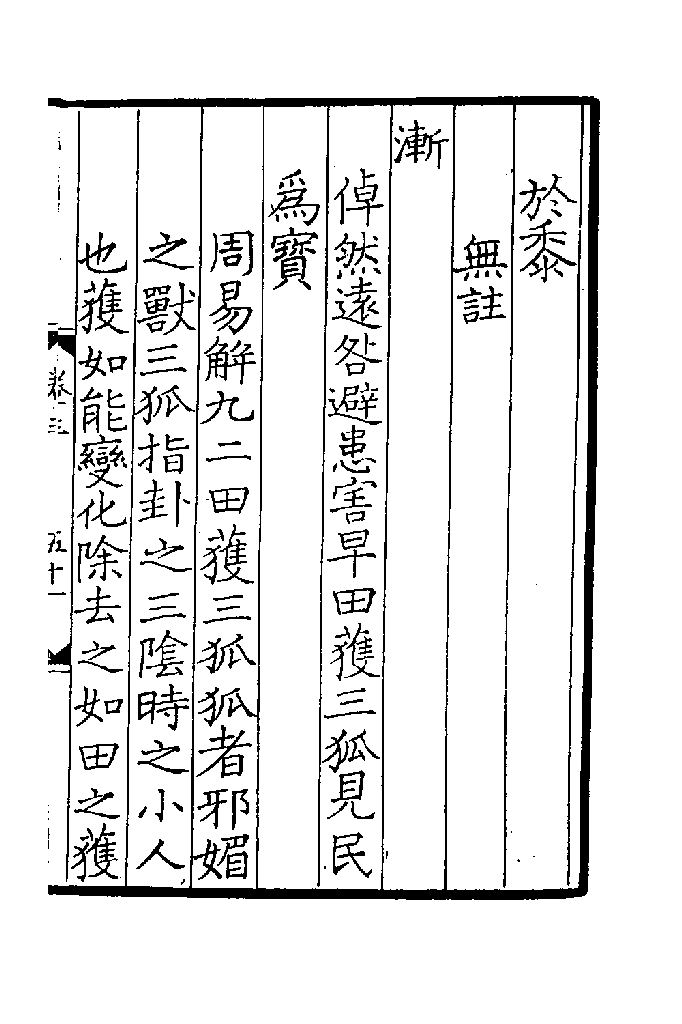 於黍
無註
漸
倬然遠咎避患害早田蒦三狐見民
爲寳
周易解九二田蒦三狐狐者邪媚
之獸三狐指卦之三陰時之小人
也蒦如能變化除去之如田之蒦
卷十三
五十一